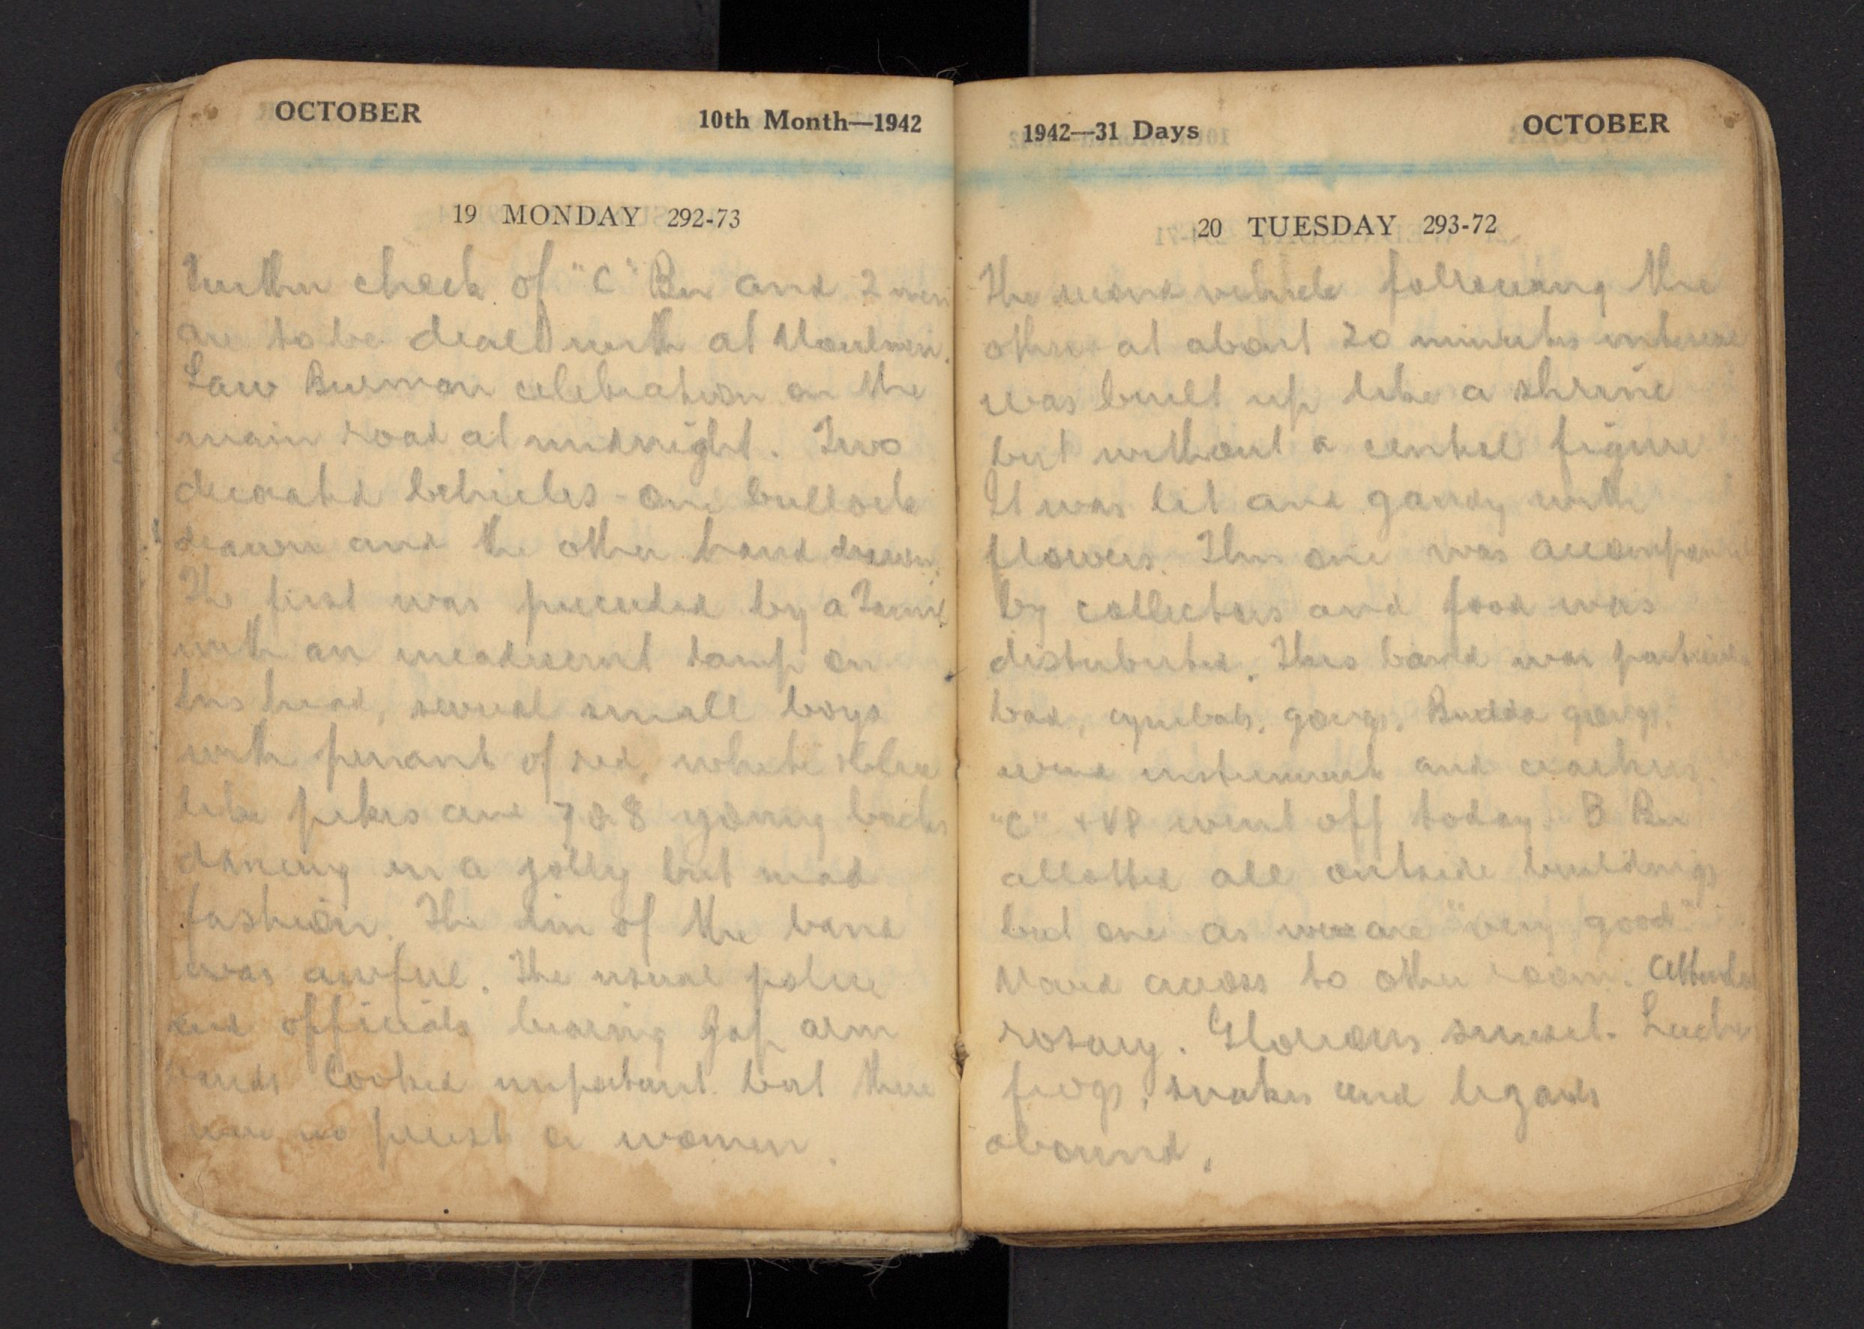 OCTOBER 10th Month—1942
19 MONDAY 292-73
Further check of "C" Bn and 2 men
are to be dealt with at Moulmein.
Saw Burman celebration on the
main road at midnight. Two
decorated vehicles - one bullock
drawn and the other hand drawn.
The first was preceded by a Tamil
with an incadescent lamp on
his head, several small boys
with penant of red, white & blue
like pikes and 7 or 8 young bucks
dancing in a jolly but mad
fashion. The din of the band
was awful. The usual police
and officials bearing Jap arm
bands looked important but there
were no priest or women.
1942—31 Days OCTOBER
20 TUESDAY 293-72
The second vehicle following the
other at about 20 minutes interval
was built up like a shrine
but without a central figure
It was lit and gaudy with
flowers. This one was accompanied
by collectors and food was
distributed. This band was particularly
bad, cymbals, gongs, Budda gongs,
wind instrument and crashers.
"C" + VP went off today. B Bn
allotted all outside buildings
but one as we are "very good"
Moved across to other room. Attended
rosary. Glorious sunset.
frogs, snakes and lizards
abound.